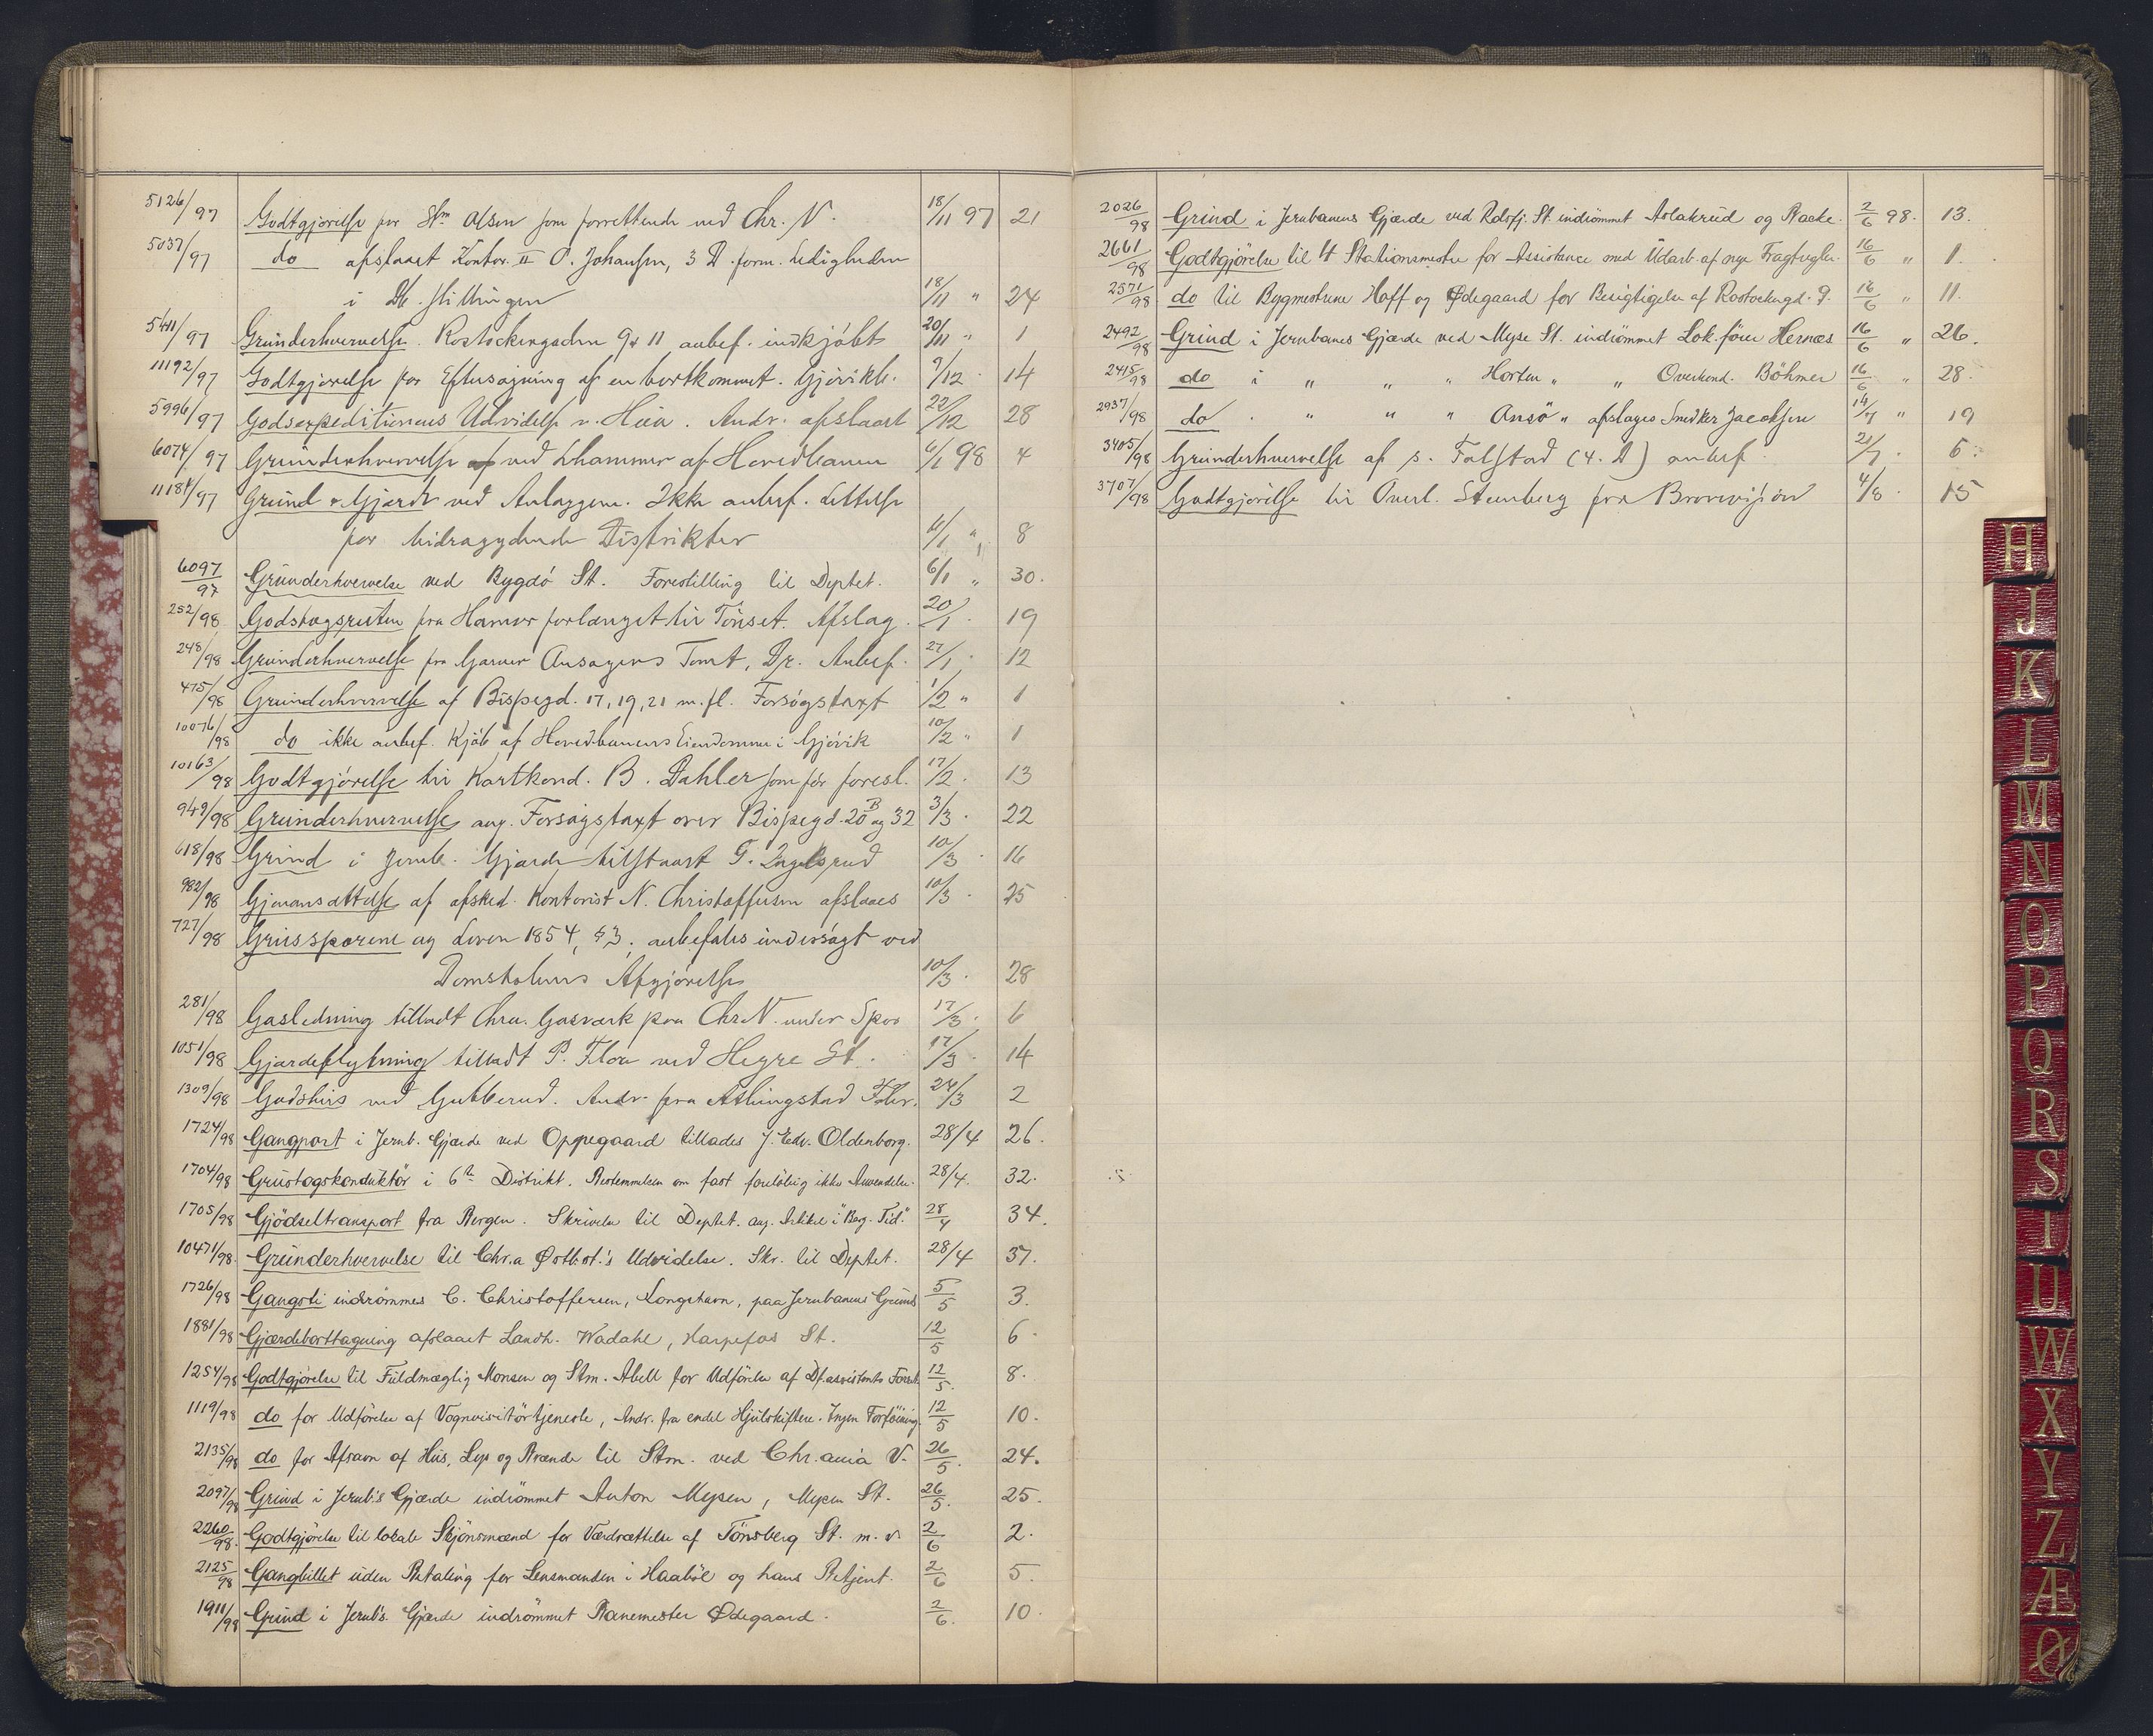 5126/97 Godtgjörelse for Stm Olsen som forrettende ved Chr. V. 18/11 97 21
5037/97 do afslaaet Kontor. II O. Johansen, 3 D. form. Ledigheden
i stillingen 18/11 " 24
5411/97 Grunderhvervelse. Rostockergaden 9 & 11 anbef. indkjöbt 20/11 " 1
11192/97 Godtgjörelse for Eftersøgning af en bortkommet. Gjövikb. 9/12 14
5996/97 Godsexpeditionens Udvidelse v. Andr. afslaaet 22/12 28
6074/97 Grunderhvervelse af ved Lhammer af Hovedbanen 6/1 98 4
11184/97 Grund & Gjærde ved Anlæggene. Ikke anbef. Lettelse
for bidragydende Distrikter 6/1 " 8
6097/97 Grunderhvervelse ved Bygdö St. Forestilling til Deptet. 6/1 " 30.
252/98 Godstogsruten fra Hamar forlænget til Tönset. Afslag. 20/1 19
248/98 Grunderhvervelse fra Garver Tomt, Dr. Anbef. 27/1 12
475/98 Grunderhvervelse af Bispegd. 17, 19, 21 m. fl. Forsøgstaxt 1/2 " 1
10076/98 do ikke anbef. Kjöb af Hovedbanens Eiendomme i Gjövik 10/2 " 1
10163/98 Godtgjörelse til Kartkond. B. Dahler som för foresl. 17/2 13
949/98 Grunderhvervelse ang. Forsøgstaxt over Bispegd. 20 B og 32 3/3 22
618/98 Grind i Jernb. Gjærde tilstaaet T. Engelsrud 10/3 16
982/98 Gjenansættelse af afsked. Kontorist N. Christoffersen afslaaes 10/3 25
727/98 Grussporene og Loven 1854, § 3, anbefales undersögt ved
Domstolens Afgjörelse 10/3 28
281/98 Gasledning tilladt Chra. Gasværk paa Chr. V. under Spor 17/3 6
1051/98 Gjærdeflytning tilladt P. Flora ved Hegre St. 17/3 14
1309/98 Godshus ved Gubberud. Andr. fra 24/3 2
1724/98 Gangport i Jernb. Gjærde ved Oppegaard tillades J. Edv. Oldenborg. 28/4 26.
1704/98 Grustogskonduktör i 6te Distrikt. Bestemmelsen om fast forelöbig ikke Anvendelse. 28/4. 32.
1705/98 Gjödseltransport fra Bergen. Skrivelse til Deptet. ang. Artikel i "Berg. Tid." 28/4 34.
10471/98 Grunderhvervelse til Chr.a Østb.st.'s Udvidelse. Skr. til Deptet. 28/4 37.
1726/98 Gangsti indrömmes C. Christoffersen, Longshavn, paa Jernbanens Grund 5/5 3.
1881/98 Gjærdeborttagning afslaaet Landh. Wadahl, Harpefos St. 12/5 6.
1254/98 Godtgjörelse til Fuldmægtig Monsen og Stm. Abell for Udförelse af Df.assistents Forret. 12/5. 8.
1119/98 do for Udförelse af Vognvisitörtjeneste, Andr. fra endel Hjulskiftere. Ingen Forföining. 12/5 10.
2135/98 do for Afsavn af Hus, Lys og Brænde til Stm. ved Chr.ania V. 26/5. 24.
2097/98 Grind i Jernb.'s Gjærde indrömmet Anton Mysen, Mysen St. 26/5. 25.
2260/98. Godtgjörelse til lokale Skjönsmænd for Værdsættelse af Tönsberg St. m. v. 2/6 2.
2125/98 Gangbillet uden Betaling for Lensmanden i Haaböl og hans Betjent. 2/6 5.
1911/98 Grind i Jernb's. Gjærde indrömmet Banemester Ødegaard. 2/6. 10.
2026/98 Grind i Jernbanens Gjærde ved Rdsfj. St. indrömmet Aslakrud og Bakke. 2/6 98. 13.
2661/98 Godtgjörelse til 4 Stationsmestre for Assistance med Udarb. af nye Fragtregler. 16/6 " 1.
2571/98 do til Bygmestrene Hoff og Ødegaard for Besigtigelse af Rostockergd. 9. 16/6 " 11.
2492/98 Grind i Jernbanens Gjærde ved Myse St. indrömmet Lok.förer Hernæs 16/6 " 26.
2415/98 do i " " " Horten " " Overkond. Böhmer 16/6 " 28.
2937/98 do " " " Ansö " afslaaes Snedker Jacobsen 14/7 " 19
3405/98 Grunderhvervelse af p. Falstad (4. D) anbef. 21/7 6.
3707/98 Godtgjörelse til Overl. Stenberg for Brorevision 4/8 15
H
J
K
L
M
N
O
P
Q
R
S
T
U
W
X
Y
Z
Æ
Ø